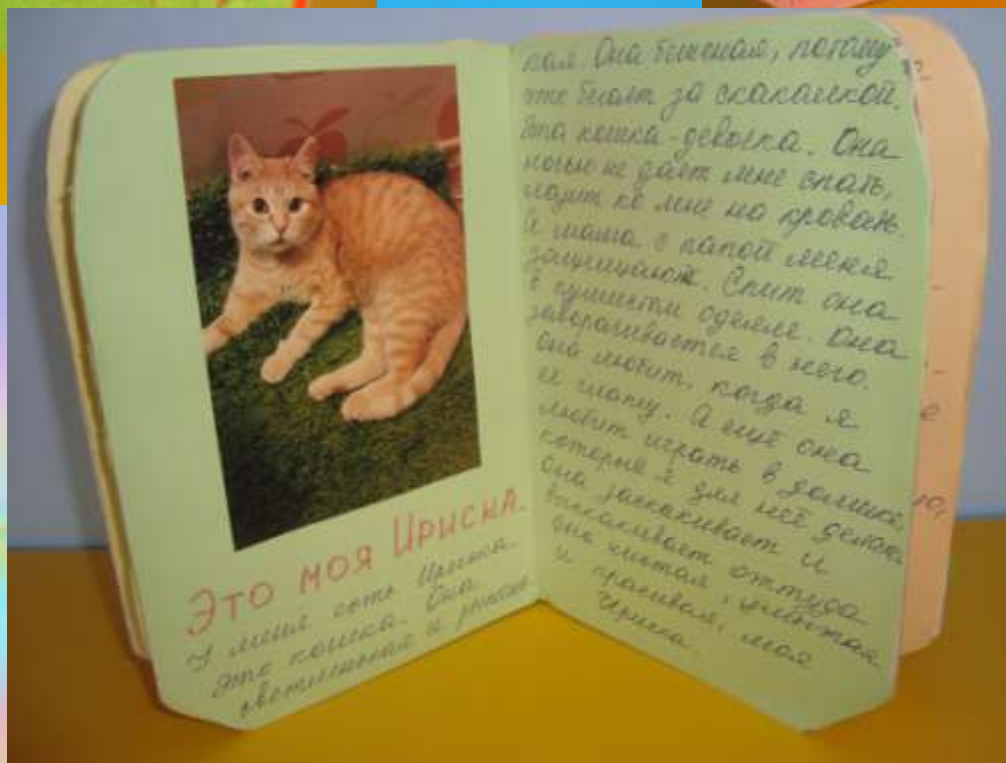 Это моя Ириска.
У меня есть Ириска.
Это кошка. Она
светленькая и
пая. Она бешеная, потому
что бегает за скакалкой.
Эта кошка-девочка. Она
ночью не даёт мне спать,
ходит ко мне на кровать.
А мама с папой меня
защищают. Спит она
в одеяле. Она
заворачивается в него.
Она любит, когда я
её глажу. А ещё она
любит играть в домике,
который я для неё делаю
Она заскакивает и
выскакивает оттуда
она чистая,
и красивая, моя
Ириска.